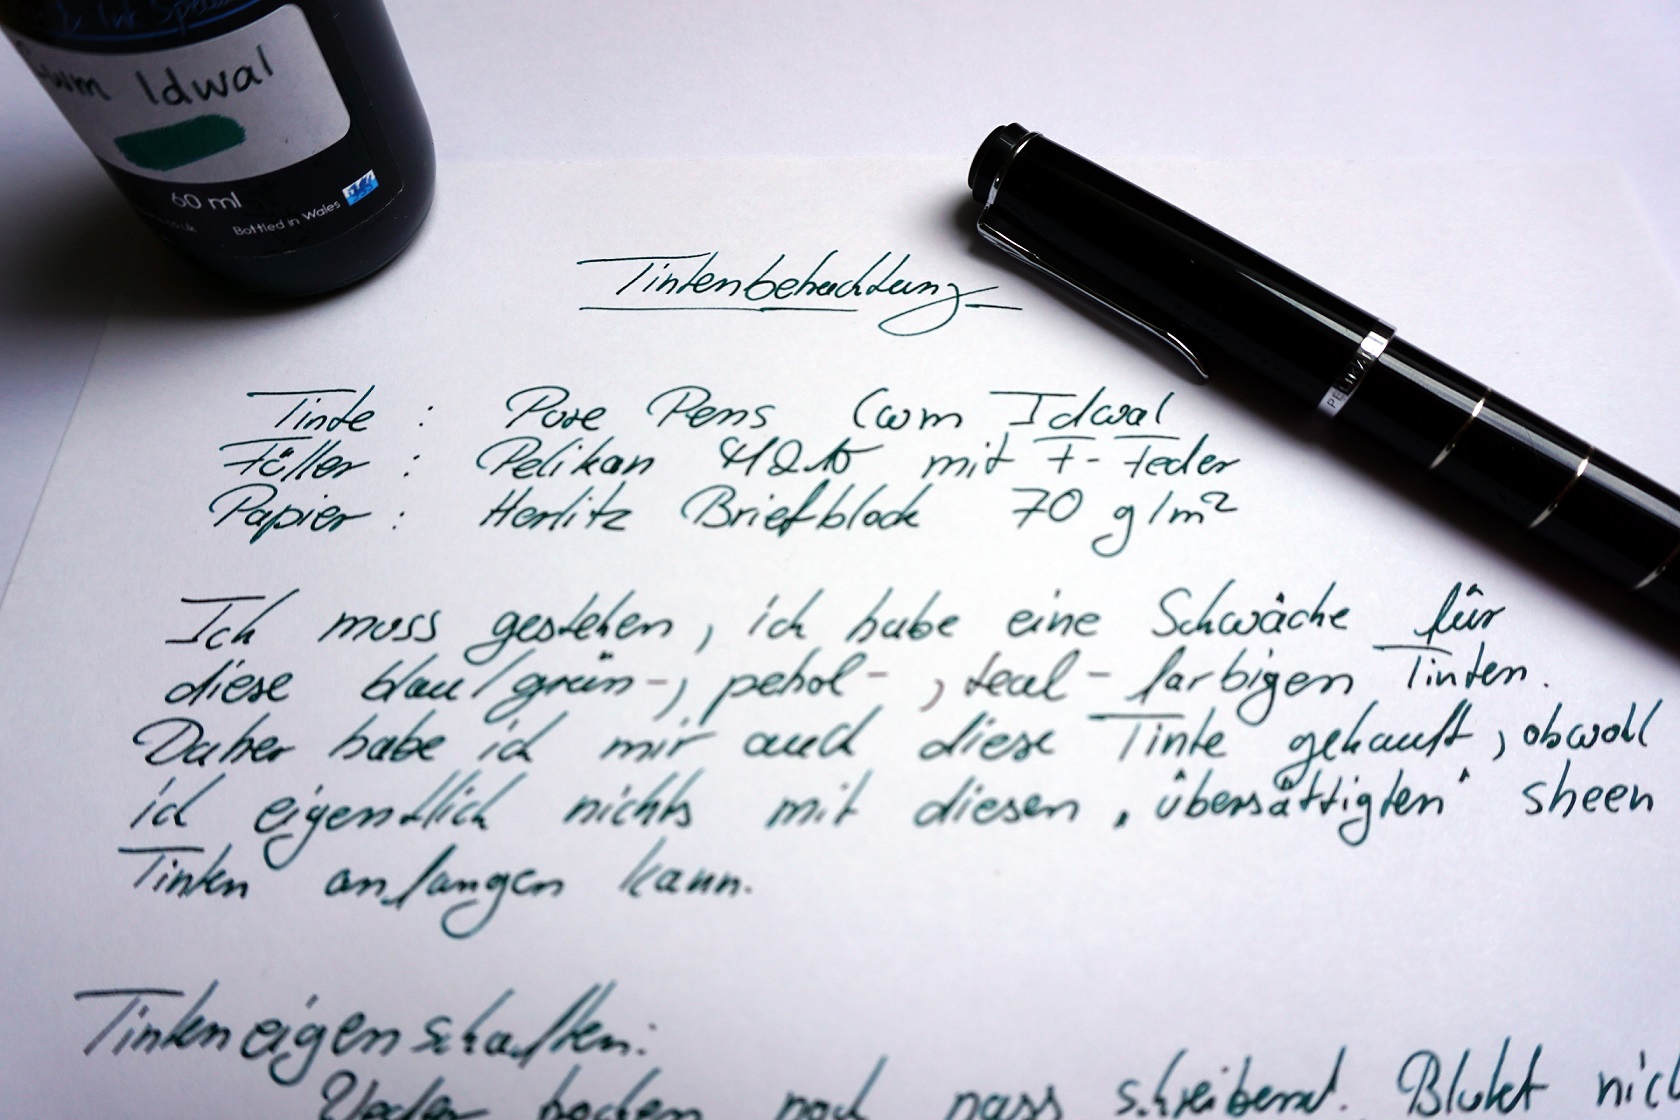 Ink Spec
Cwm Idwal
60 ml
co.uk
Bottled in Wales
PELIKAN
Tintenbetrachtung
Tinte : Pure Pens Cwm Idwal
Füller : Pelikan M205 mit F-Feder
Papier : Herlitz Briefblock 70 g/m²
Ich muss gestehen, ich habe eine Schwäche für
diese blau/grün-, petrol-, teal-farbigen Tinten.
Daher habe ich mir auch diese Tinte gekauft, obwohl
ich eigentlich nichts mit diesen „übersättigten" sheen
Tinten anfangen kann.
Tinteneigenschaften:
Weder trocken noch nass schreibend. Blutet nic